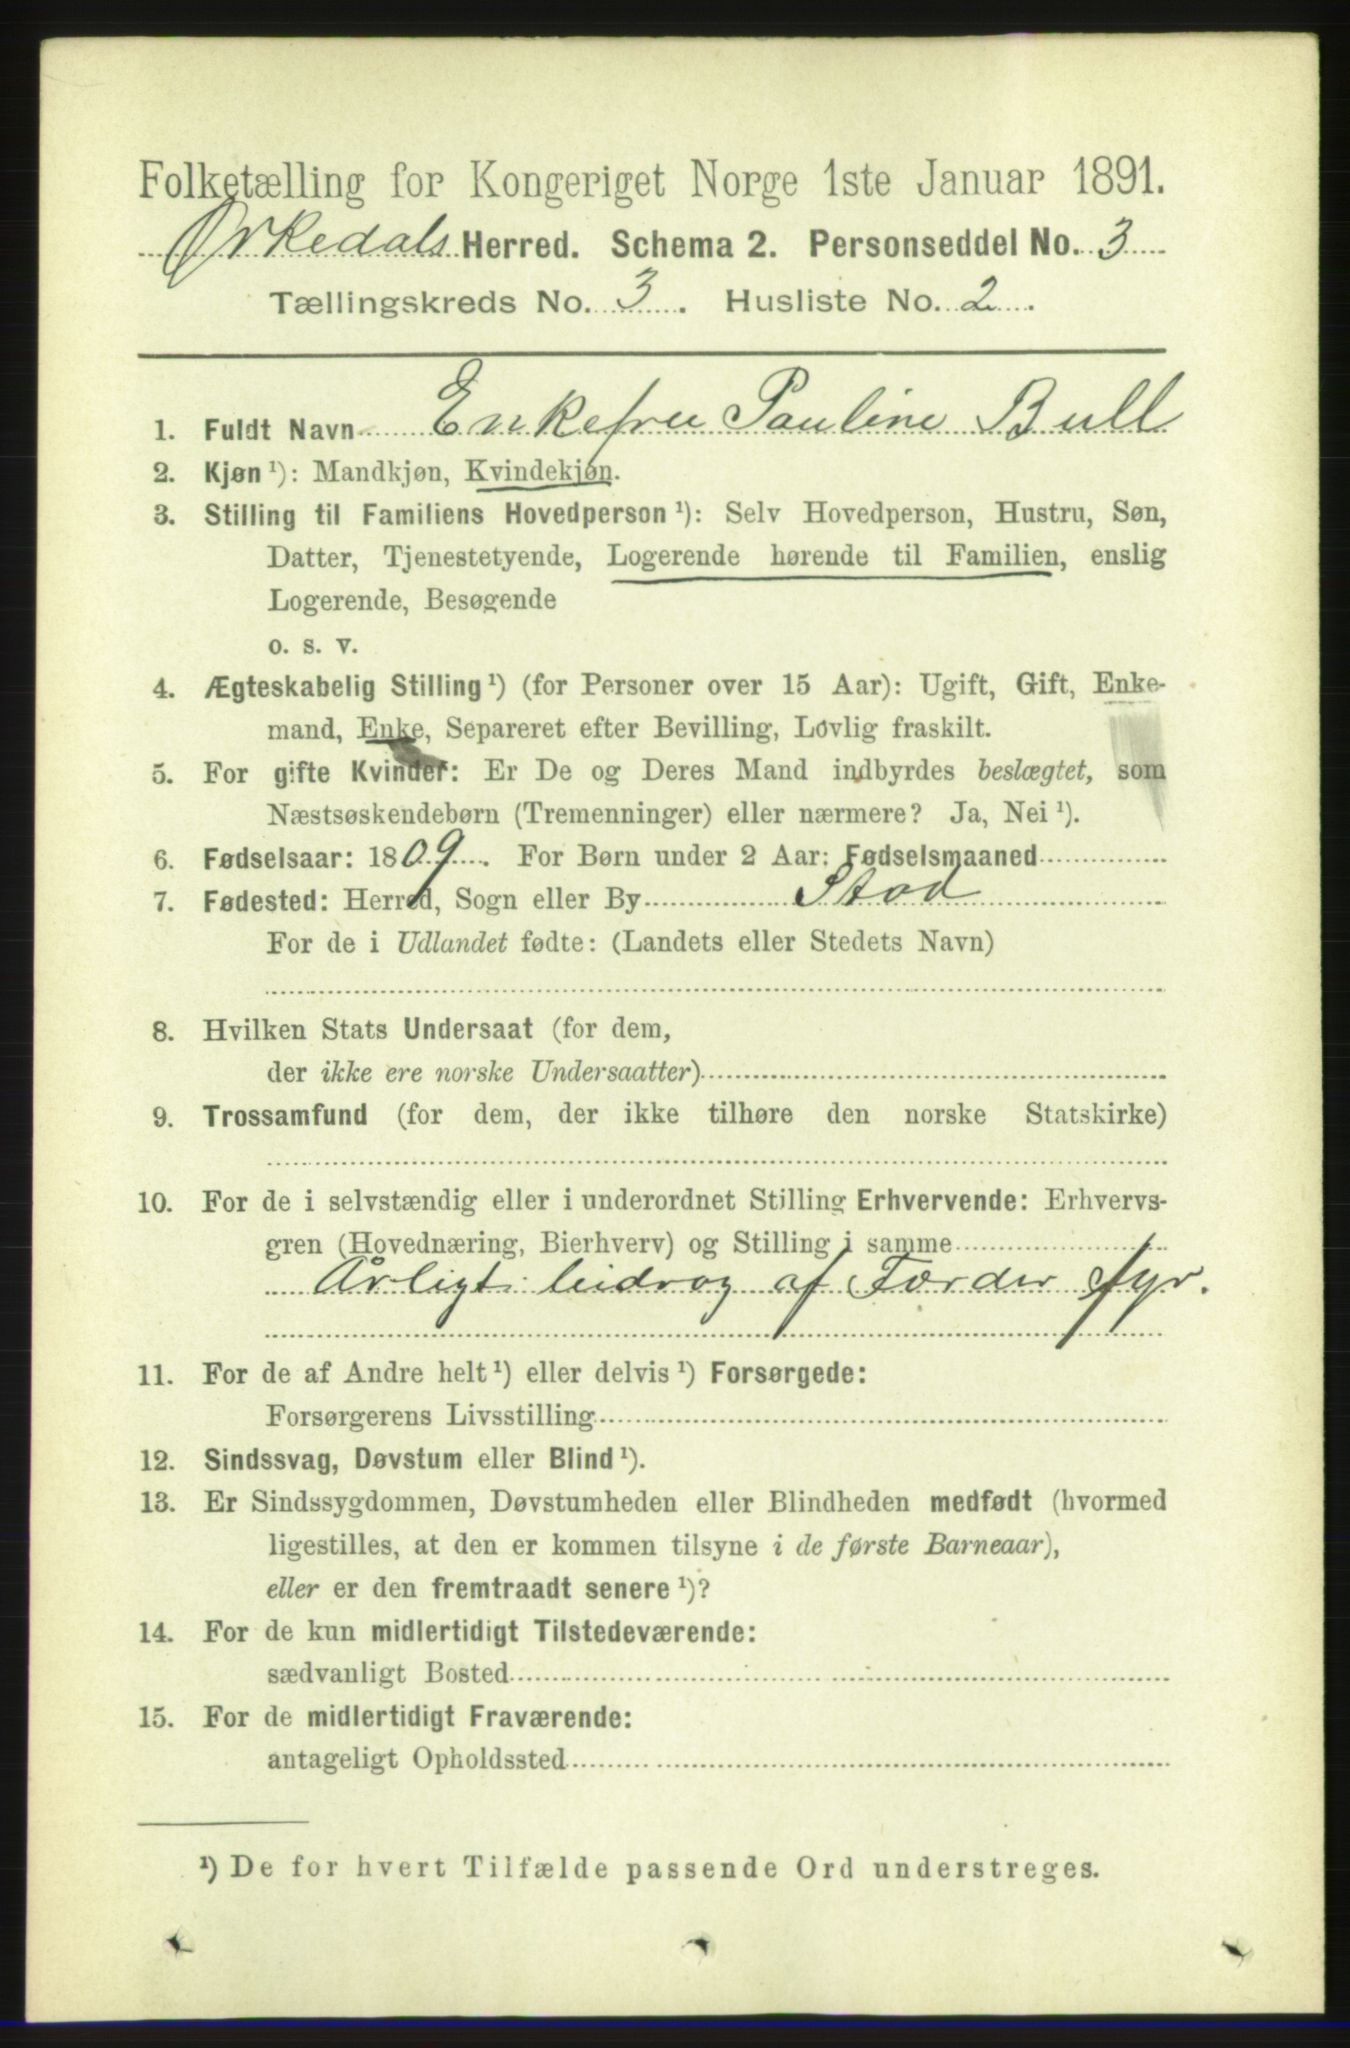 Folketælling for Kongeriget Norge 1ste Januar 1891.
Orkedals Herred. Schema 2. Personseddel No. 3
Tællingskreds No. 3. Husliste No. 2.
1. Fuldt Navn Enkefru Pauline Bull
2. Kjøn ¹): Mandkjøn, Kvindekjøn.
3. Stilling til Familiens Hovedperson ¹): Selv Hovedperson, Hustru, Søn,
Datter, Tjenestetyende, Logerende hørende til Familien, enslig
Logerende, Besøgende
o. s. v.
4. Ægteskabelig Stilling ¹) (for Personer over 15 Aar): Ugift, Gift, Enke-
mand, Enke, Separeret efter Bevilling, Lovlig fraskilt.
5. For gifte Kvinder: Er De og Deres Mand indbyrdes beslægtet, som
Næstsøskendebørn (Tremenninger) eller nærmere? Ja, Nei ¹).
6. Fødselsaar: 1809. For Børn under 2 Aar: Fødselsmaaned
7. Fødested: Herred, Sogn eller By Stod
For de i Udlandet fødte: (Landets eller Stedets Navn)
8. Hvilken Stats Undersaat (for dem,
der ikke ere norske Undersaatter)
9. Trossamfund (for dem, der ikke tilhøre den norske Statskirke)
10. For de i selvstændig eller i underordnet Stilling Erhvervende: Erhvervs-
gren (Hovednæring, Bierhverv) og Stilling i samme
Årligt bidrag af Færder fyr.
11. For de af Andre helt ¹) eller delvis ¹) Forsørgede:
Forsørgerens Livsstilling
12. Sindssvag, Døvstum eller Blind ¹).
13. Er Sindssygdommen, Døvstumheden eller Blindheden medfødt (hvormed
ligestilles, at den er kommen tilsyne i de første Barneaar),
eller er den fremtraadt senere ¹)?
14. For de kun midlertidigt Tilstedeværende:
sædvanligt Bosted
15. For de midlertidigt Fraværende:
antageligt Opholdssted
¹) De for hvert Tilfælde passende Ord understreges.